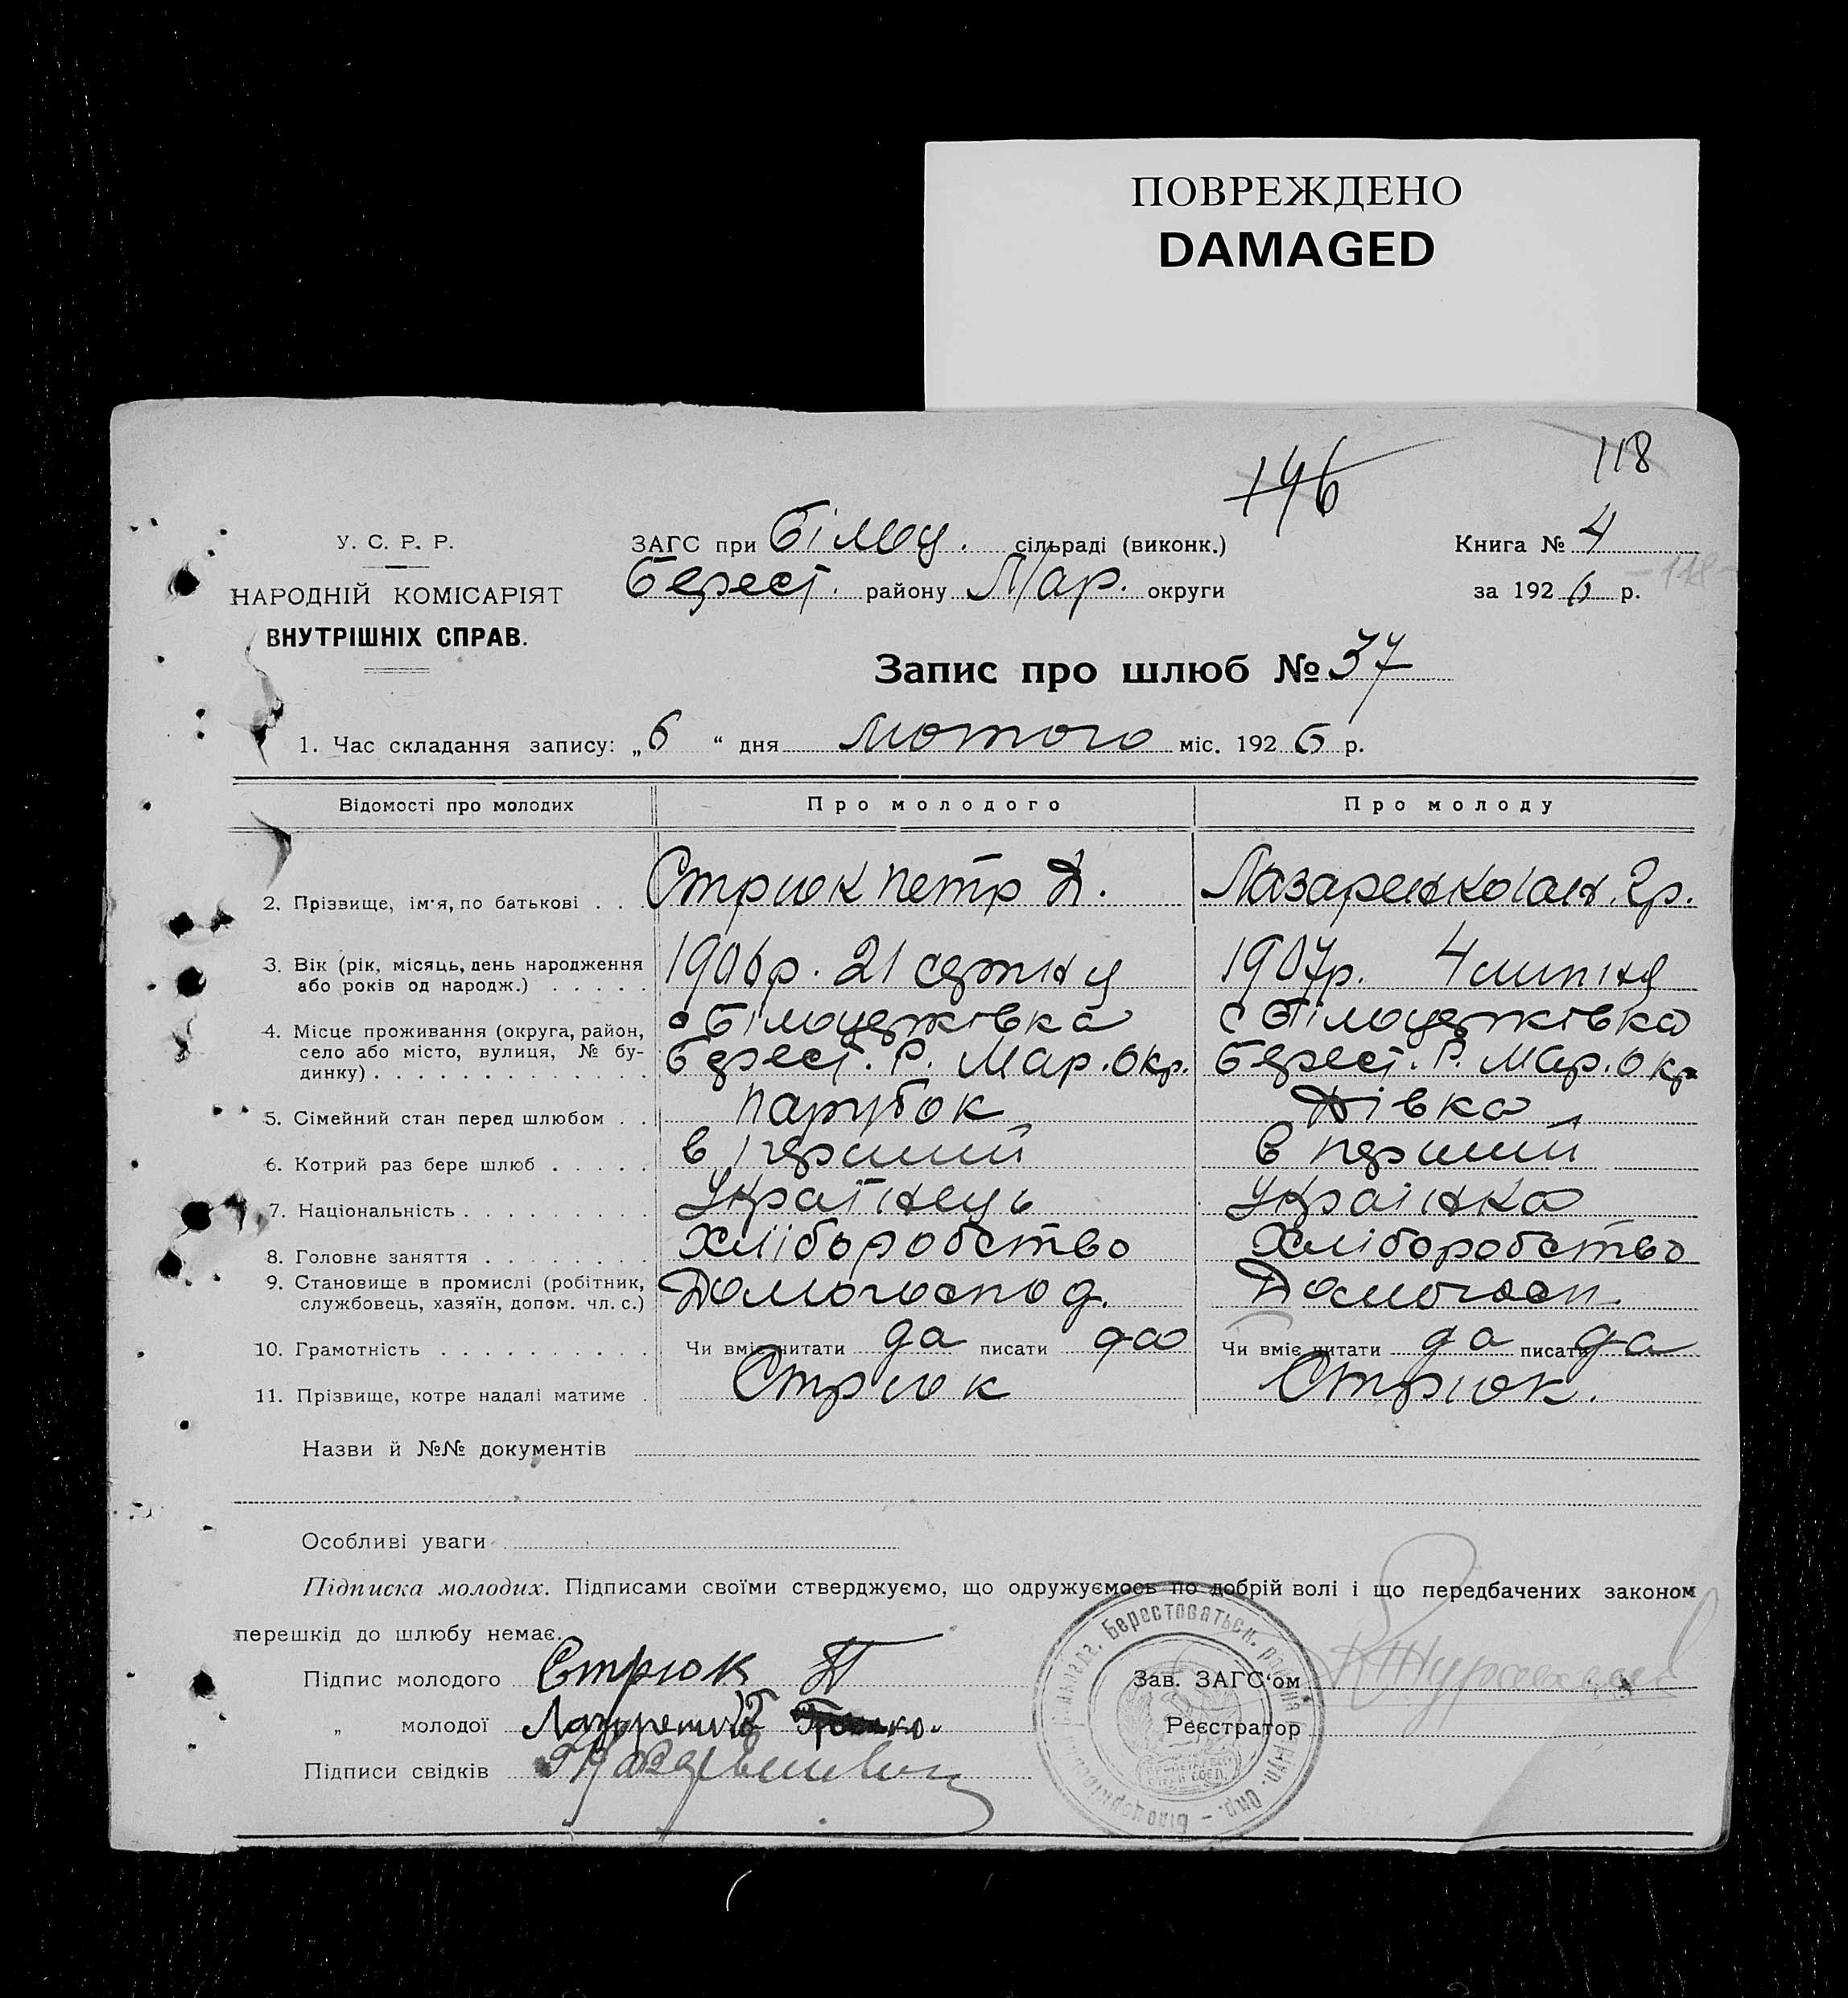 ПОВРЕЖДЕНО
DAMAGED
146
118
У. С. Р. Р.
НАРОДНІЙ КОМІСАРІЯТ
ВНУТРІШНІХ СПРАВ.
ЗАГС при Білоц. сільраді (виконк.)
Берест. району Мар. округи
Книга № 4
-118-
за 1926 р.
Запис про шлюб № 37
1. Час складання запису: „6“ дня лютого міс. 1926 р.
Відомості про молодих Про молодого Про молоду
2. Прізвище, ім'я, по батькові . . . Стрюк Петр Д. Лазаренко Ган. Гр.
3. Вік (рік, місяць, день народження або років од народж.) . . . . . 1906р. 21 1907р. 4 липня
4. Місце проживання (округа, район, село або місто, вулиця, № будинку) . . . . . . . . . . . . . Берест. Р. Мар. Окр. с Берест. Р. Мар. Окр.
5. Сімейний стан перед шлюбом . . Парубок Дівка
6. Котрий раз бере шлюб . . . . . в перший в перший
7. Національність . . . . . . . . . Українець Українка
8. Головне заняття . . . . . . . . Хліборобство Хліборобство
9. Становище в промислі (робітник, службовець, хазяїн, допом. чл. с.) Домогоспод. Домогосп.
10. Грамотність . . . . . . . . . . Чи вміє читати да писати да Чи вміє читати да писати да
11. Прізвище, котре надалі матиме . Стрюк Стрюк.
Назви й №№ документів
Особливі уваги
Підписка молодих. Підписами своїми стверджуємо, що одружуємось по добрій волі і що передбачених законом
перешкід до шлюбу немає.
Підпис молодого Стрюк П
Зав. ЗАГС'ом
„ молодої
Реєстратор
Підписи свідків
Берестоватьск. району
Окр.